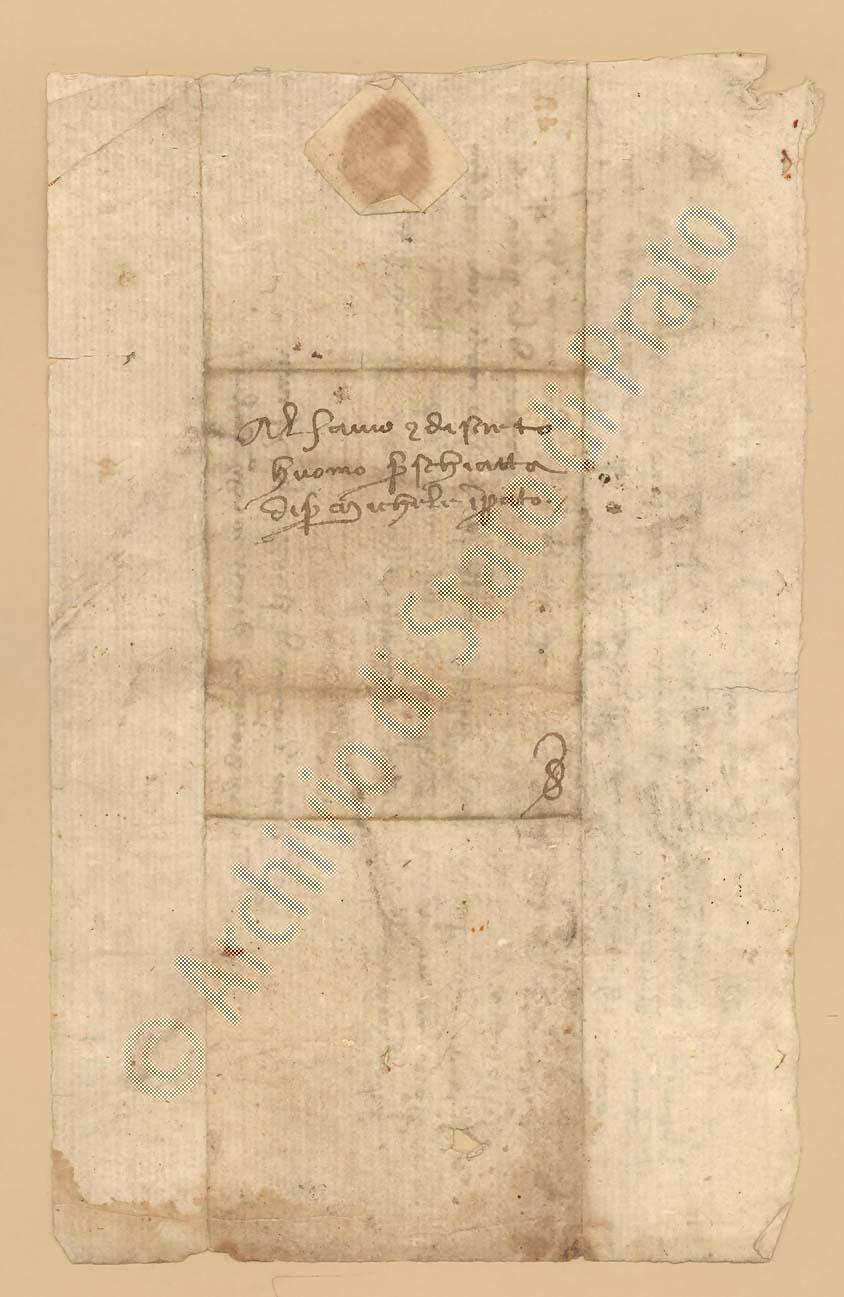 Al savio e discreto
huomo s schiatta
di s michele i pato
© Archivio di Stato di Prato